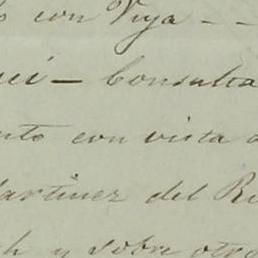 con Viya - -
- Consulta
nto con vista a
Martinez del R
h y sobre otro